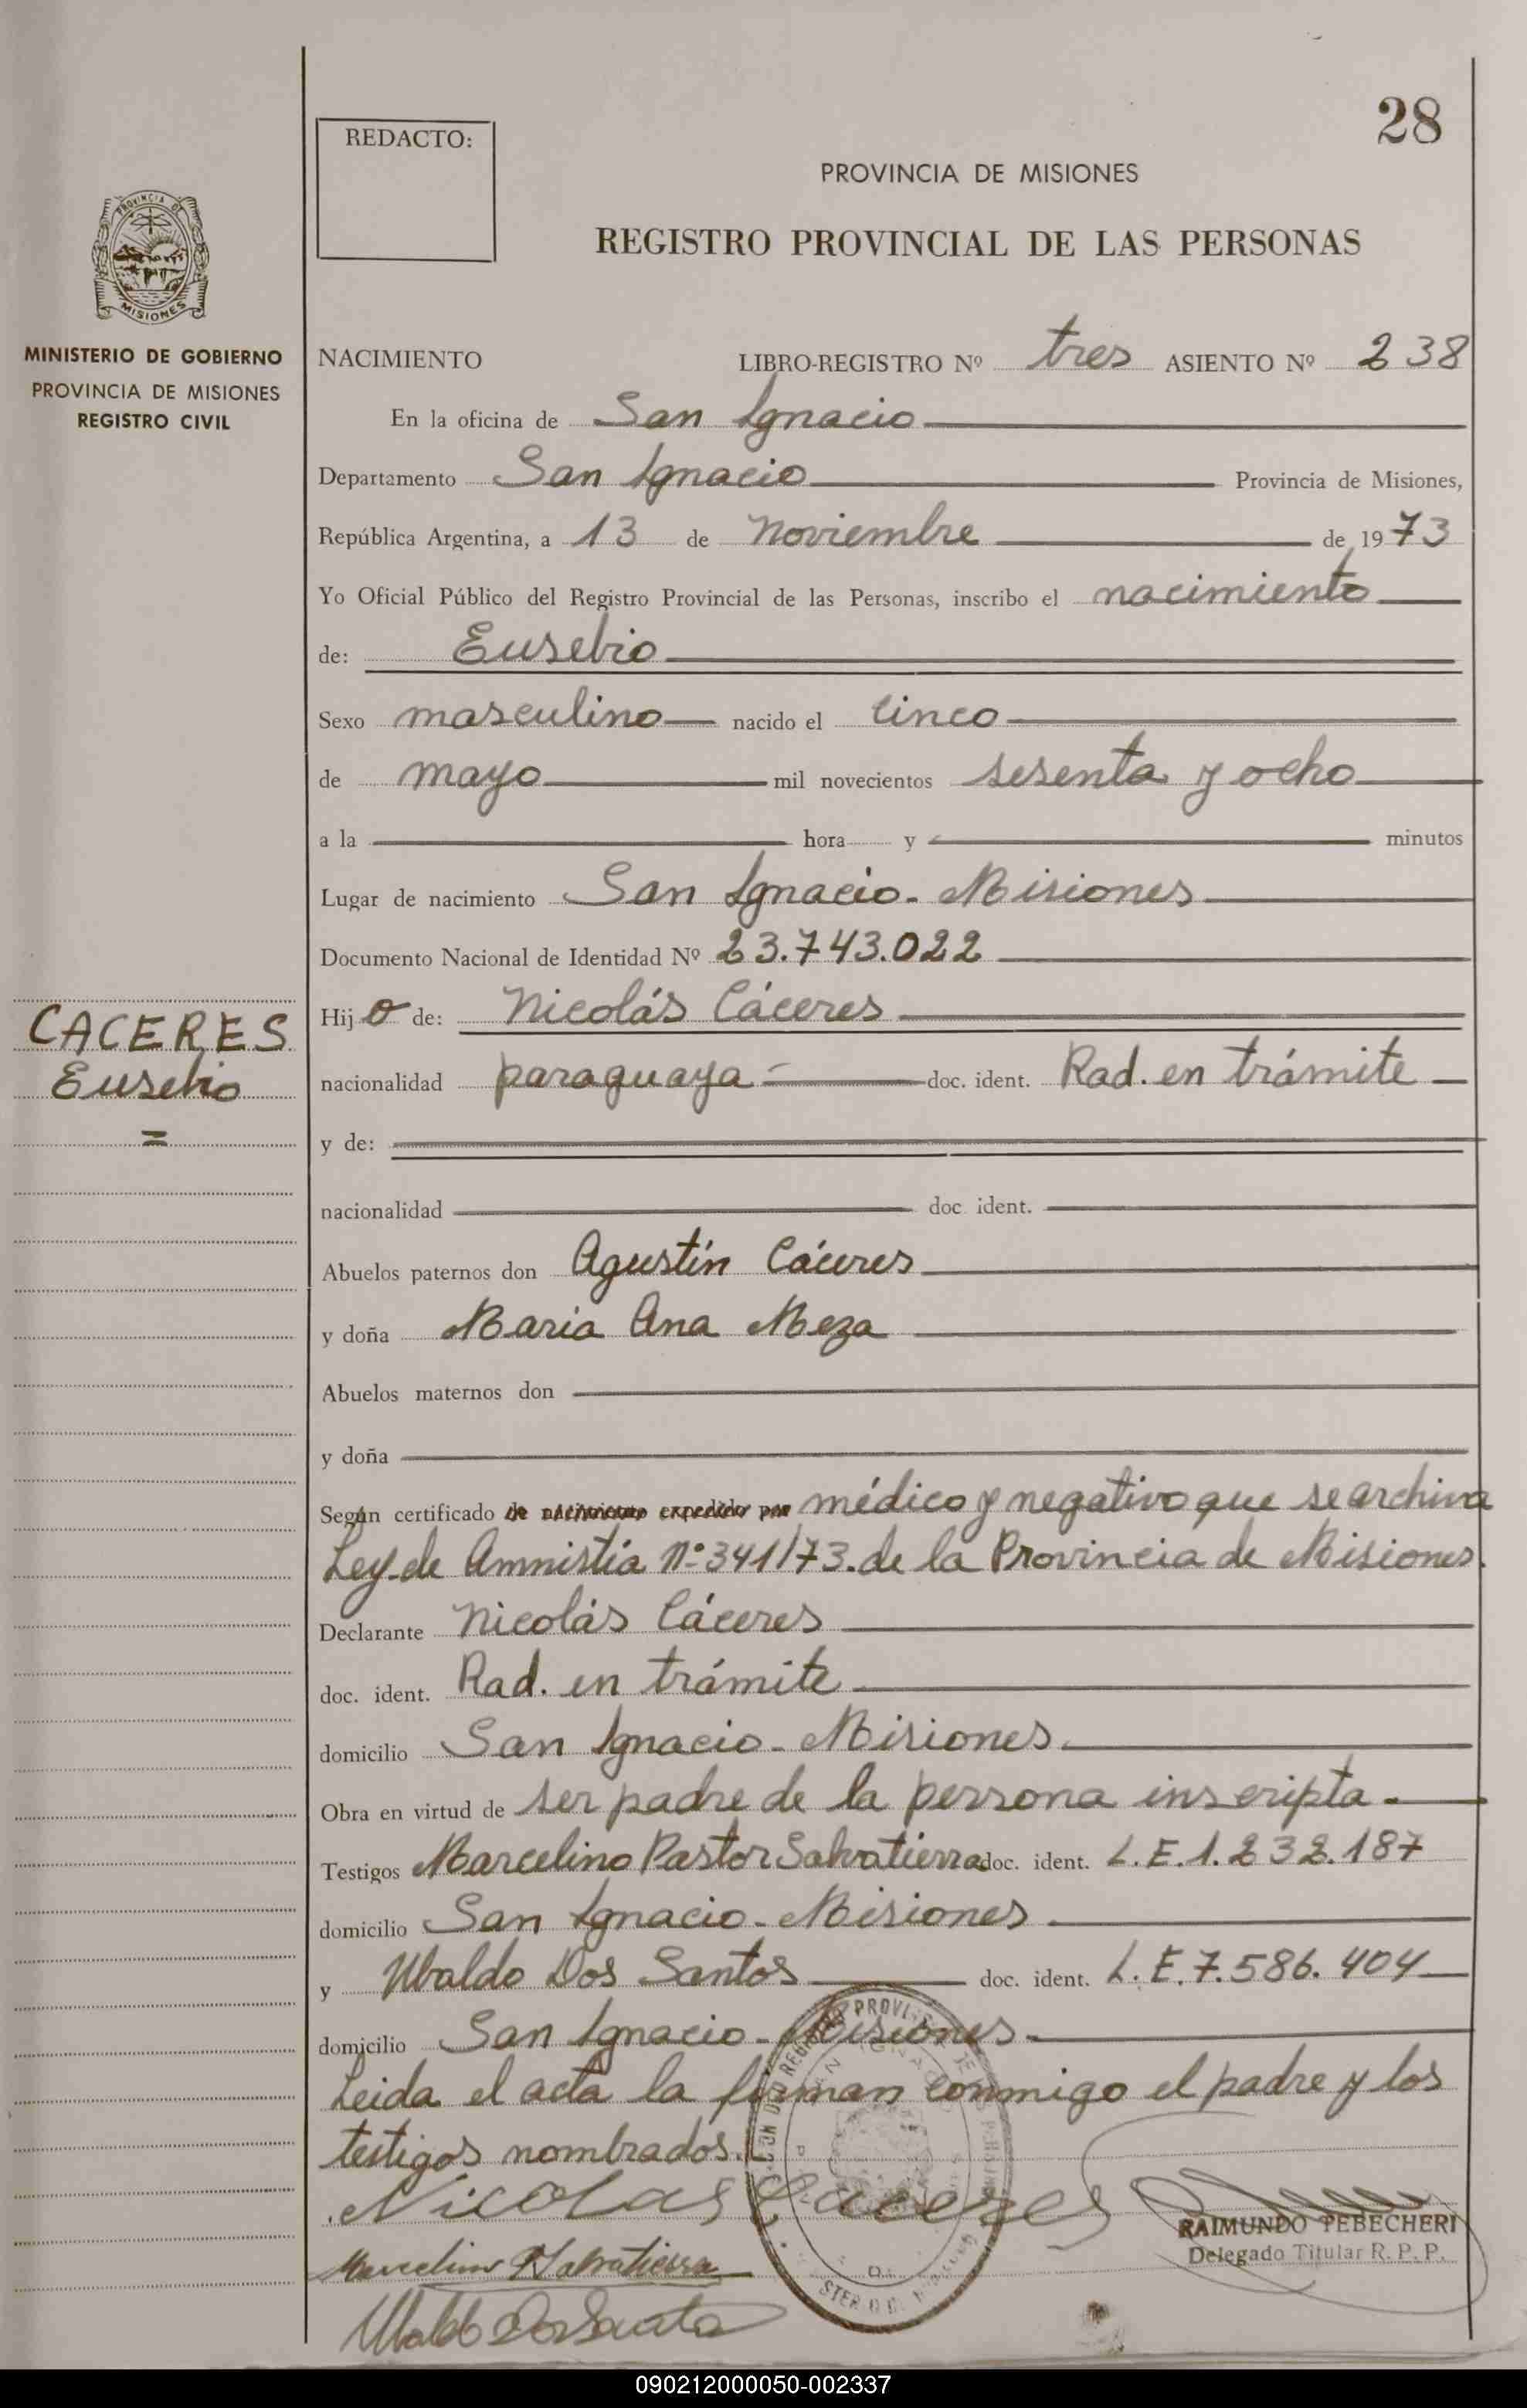 28
REDACTO:
PROVINCIA DE MISIONES
REGISTRO PROVINCIAL DE LAS PERSONAS
PROVINCIA DE
MISIONES
MINISTERIO DE GOBIERNO
PROVINCIA DE MISIONES
REGISTRO CIVIL
NACIMIENTO LIBRO-REGISTRO Nº tres ASIENTO Nº 238
En la oficina de San Ignacio
Departamento San Ignacio Provincia de Misiones,
República Argentina, a 13 de Noviembre de 1973
Yo Oficial Público del Registro Provincial de las Personas, inscribo el nacimiento
de: Eusebio
Sexo masculino nacido el cinco
de mayo mil novecientos sesenta y ocho
a la hora y minutos
Lugar de nacimiento San Ignacio - Misiones
Documento Nacional de Identidad Nº 23.743.022
CACERES
Eusebio
=
Hijo de: Nicolás Cáceres
nacionalidad paraguaya - doc. ident. Rad. en trámite
y de:
nacionalidad doc. ident.
Abuelos paternos don Agustín Cáceres
y doña Maria Ana Meza
Abuelos maternos don
y doña
Según certificado de nacimiento expedido por médico y negativo que se archiva
Ley de Amnistía Nº 341/73. de la Provincia de Misiones.
Declarante Nicolás Cáceres
doc. ident. Rad. en trámite
domicilio San Ignacio - Misiones.
Obra en virtud de ser padre de la persona inscripta.
Testigos Marcelino Pastor Salvatierra doc. ident. L.E. 1.232.187
domicilio San Ignacio - Misiones
y Ubaldo Dos Santos doc. ident. L.E. 7.586.404
domicilio San Ignacio - Misiones.
Leida el acta la firman conmigo el padre y los
testigos nombrados.
Nicolas Caceres
RAIMUNDO PEBECHERI
Delegado Titular R. P. P.
Marcelino P Salvatierra
Ubaldo Dos Santos
090212000050-002337